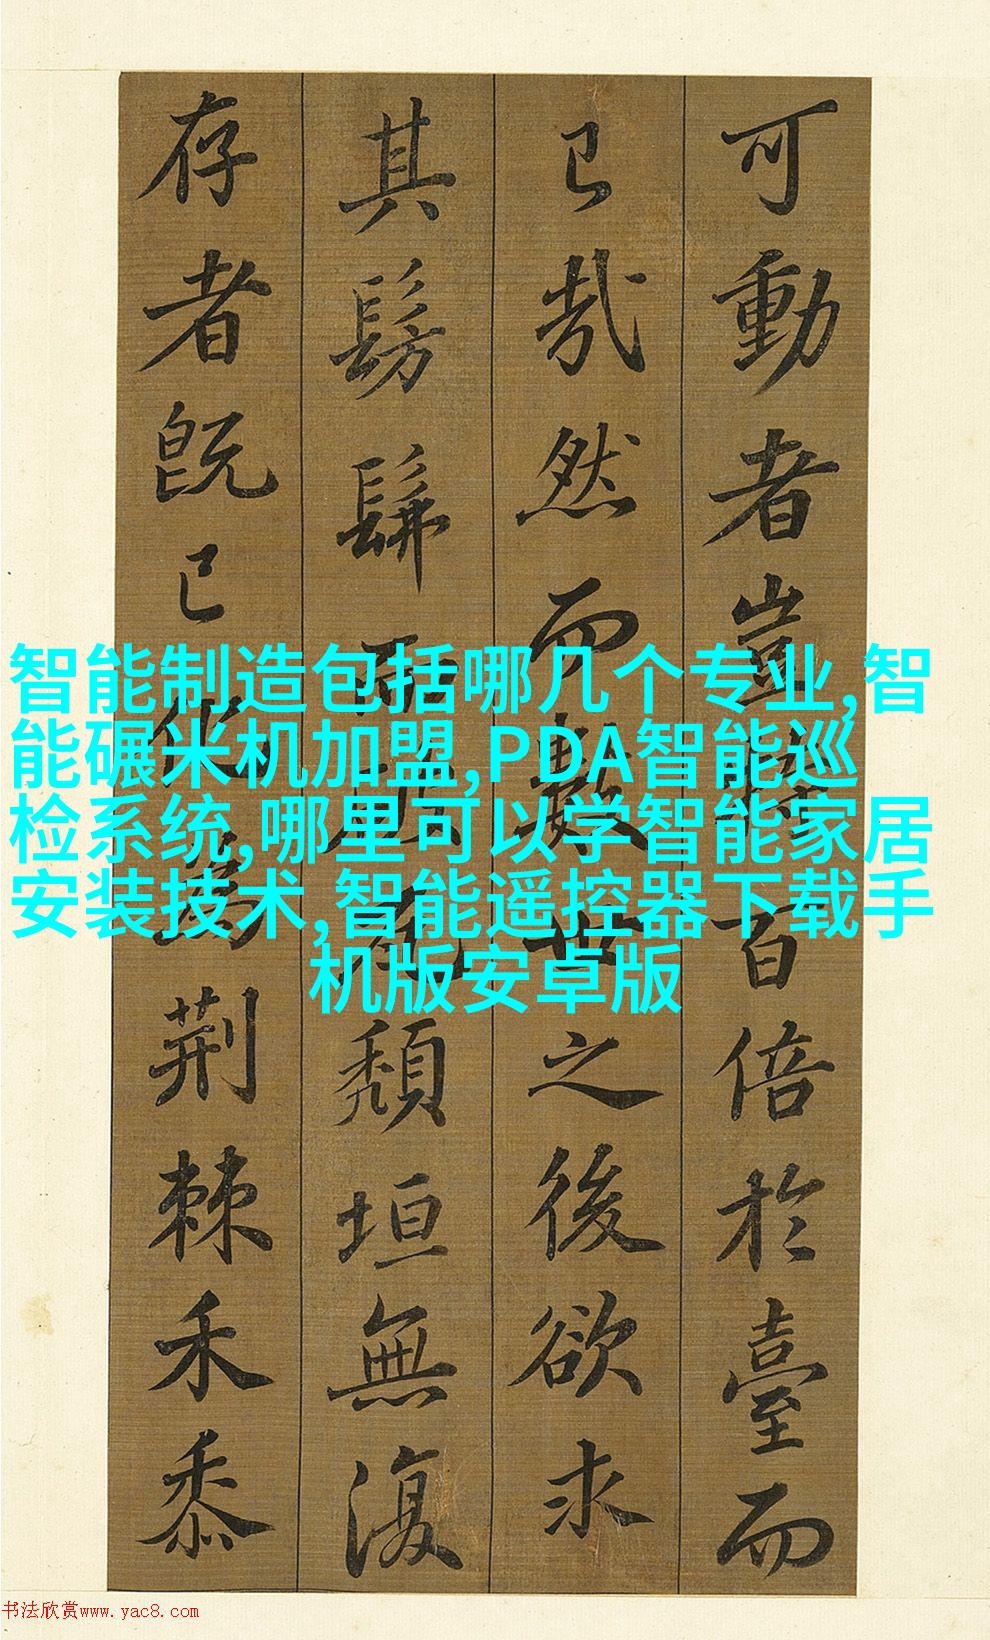 可動者豈特百倍於臺而
已哉然而數世之後欲求
其髣髴而破瓦頹垣無復
存者既已化為荊棘禾黍
智能制造包括哪几个专业,智
能碾米机加盟,PDA智能巡
检系统,哪里可以学智能家居
安装技术,智能遥控器下载手
机版安卓版
书法欣赏www.yac8.com